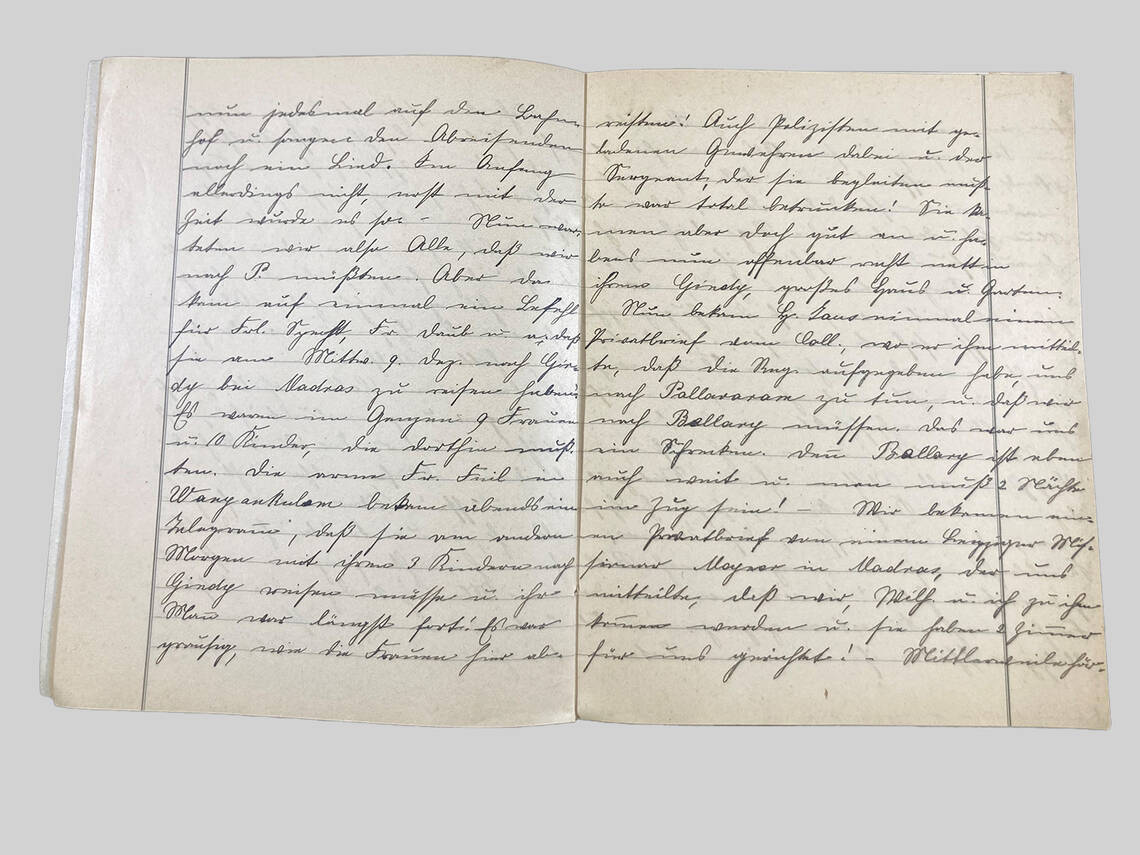 nun jedesmal auf den Bahn-
hof u. sangen den Abreisenden
noch ein Lied. Im Anfang
allerdings nicht, erst mit der
Zeit wurde es so. - Nun war-
teten wir also Alle, daß wir
nach P. müßten. Aber da
kam auf einmal ein Befehl
für Frl. Specht, Fr. Daub u. a. daß
sie am Mittw. 9. Dez. nach Gin-
dy bei Madras zu reisen haben.
Es waren im Ganzen 9 Frauen
u. 10 Kinder, die dorthin muß-
ten. Die arme Fr. Fiil in
Wanyankulam bekam abends ein
Telegram̅, daß sie am andern
Morgen mit ihren 3 Kindern nach
Giendy reisen müsse u. ihr
Man̅ war längst fort! Es war
grausig, wie die Frauen hier ab-
reisten! Auch Polizisten mit ge-
ladenen Gewehren dabei u. der
Sergeant, der sie begleiten muß-
te war total betrunken! Sie ka-
men aber doch gut an u. ha-
bens nun offenbar recht nett in
ihrem Giendy, großes Haus u. Garten.
Nun bekam H. Zaus einmal einen
Privatbrief vom Coll., wo er ihm mitteil-
te, daß die Reg. aufgegeben habe, uns
nach Pallavaram zu tun, u. daß wir
nach Bellary müssen. Das war uns
ein Schrecken. Den̅ Bellary ist eben
auch weit u. man muß 2 Nächte
im Zug sein! - Wir bekamen ein-
en Privatbrief von einem Leipziger Mis-
sionar Meyner in Madras, der uns
mitteilte, daß wir, Wilh. u. ich zu ihm
kom̅en werden u. sie haben 2 Zim̅er
für uns gerichtet! - Mittlerweile hör-